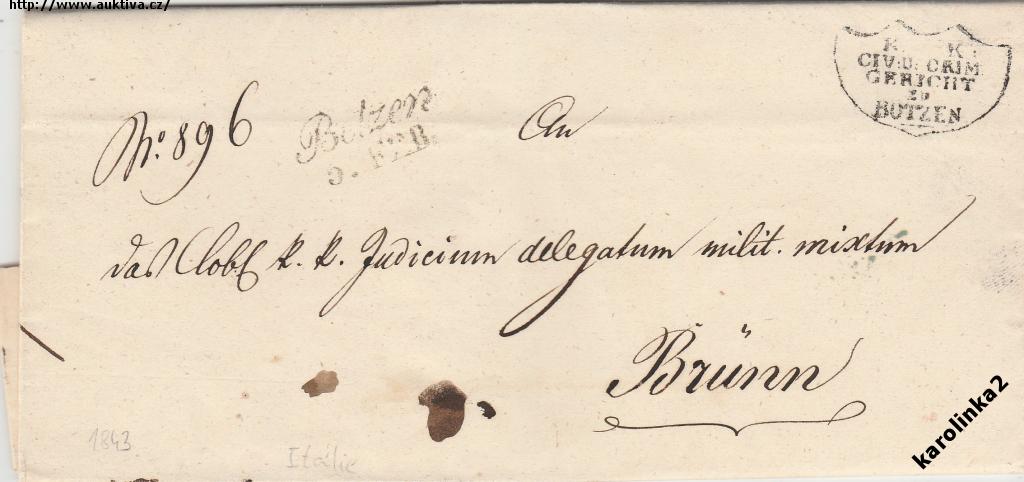 http://www.auktiva.cz/
K. K.
CIV: U: CRIM
GERICHT
zu
BOTZEN
Botzen
5. FEB.
No. 896
An
das Löbl k. k. Judicium delegatum milit. mixtum
Brünn
1843
Itálie
karolinka2